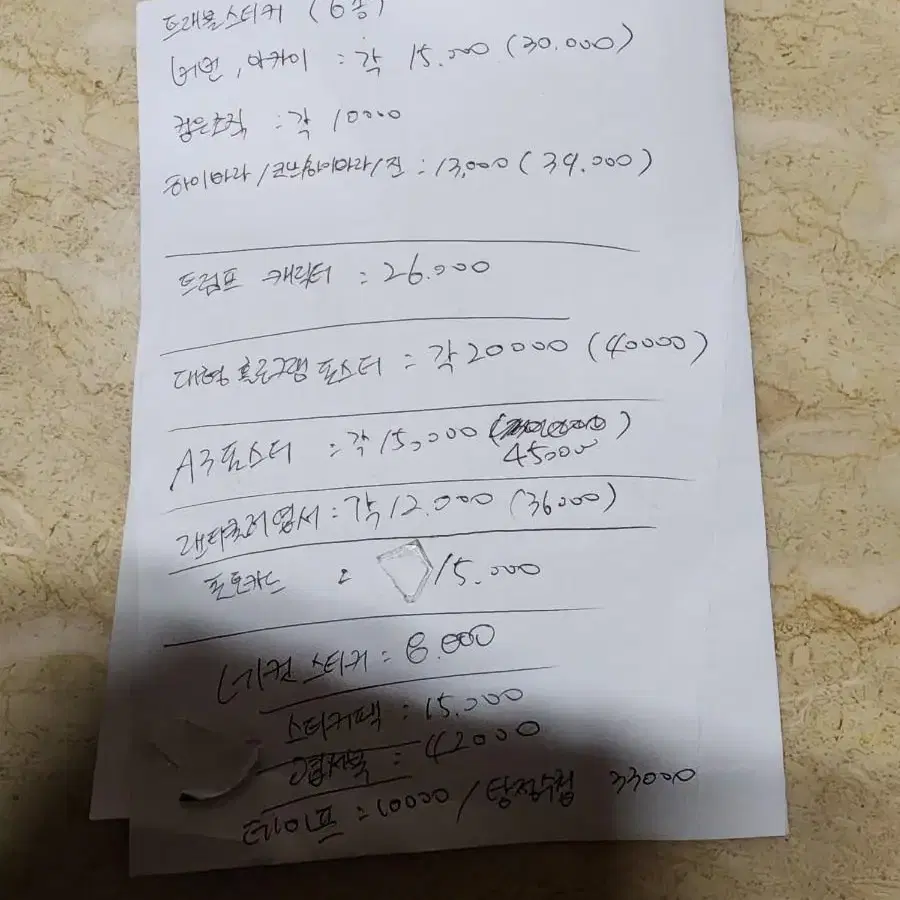 트래블스티커 (6종)
버번, 아카이 : 각 15.000 (30.000)
검은조직 : 각 10000
하이바라/코난하이바라/진 : 13,000 (39.000)
트럼프 캐릭터 : 26.000
대형 홀로그램 포스터 : 각 20000 (40000)
A3 포스터 : 각 15,000
45000
랜티큘러 엽서 : 각 12.000 (36000)
포토카드 : 15.000
버컨 스티커 : 8.000
스티커팩 : 15.000
엽서북 : 42000
테이프 : 10000 / 탐정수첩 33000